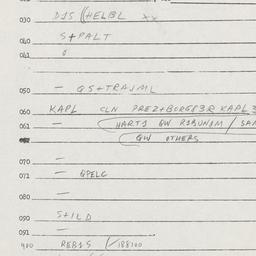 030 DJS (HELBL xx
040 S+PALT
041
050 - GS+TRAJML
060 KAPL CLN PREZ+BORGE3R KAPL3
061 - (HARTJ GW R1BUNDM / SAN
(GW OTHERS
070 -
071 - GPELG
080 -
090 S+ILD
091 -
REBJS (/188100